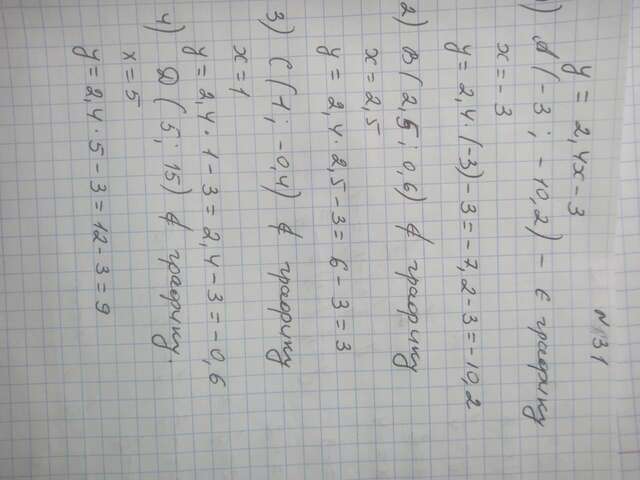 N 131
y = 2,4x-3
1) A (-3; -10,2) - ∈ графику
x = -3
y = 2,4·(-3)-3 = -7,2-3 = -10,2
2) B (2,5; 0,6) ∉ графику
x = 2,5
y = 2,4·2,5-3 = 6-3 = 3
3) C (1; -0,4) ∉ графику
x = 1
y = 2,4·1-3 = 2,4-3 = -0,6
4) D (5; 15) ∉ графику.
x = 5
y = 2,4·5-3 = 12-3 = 9